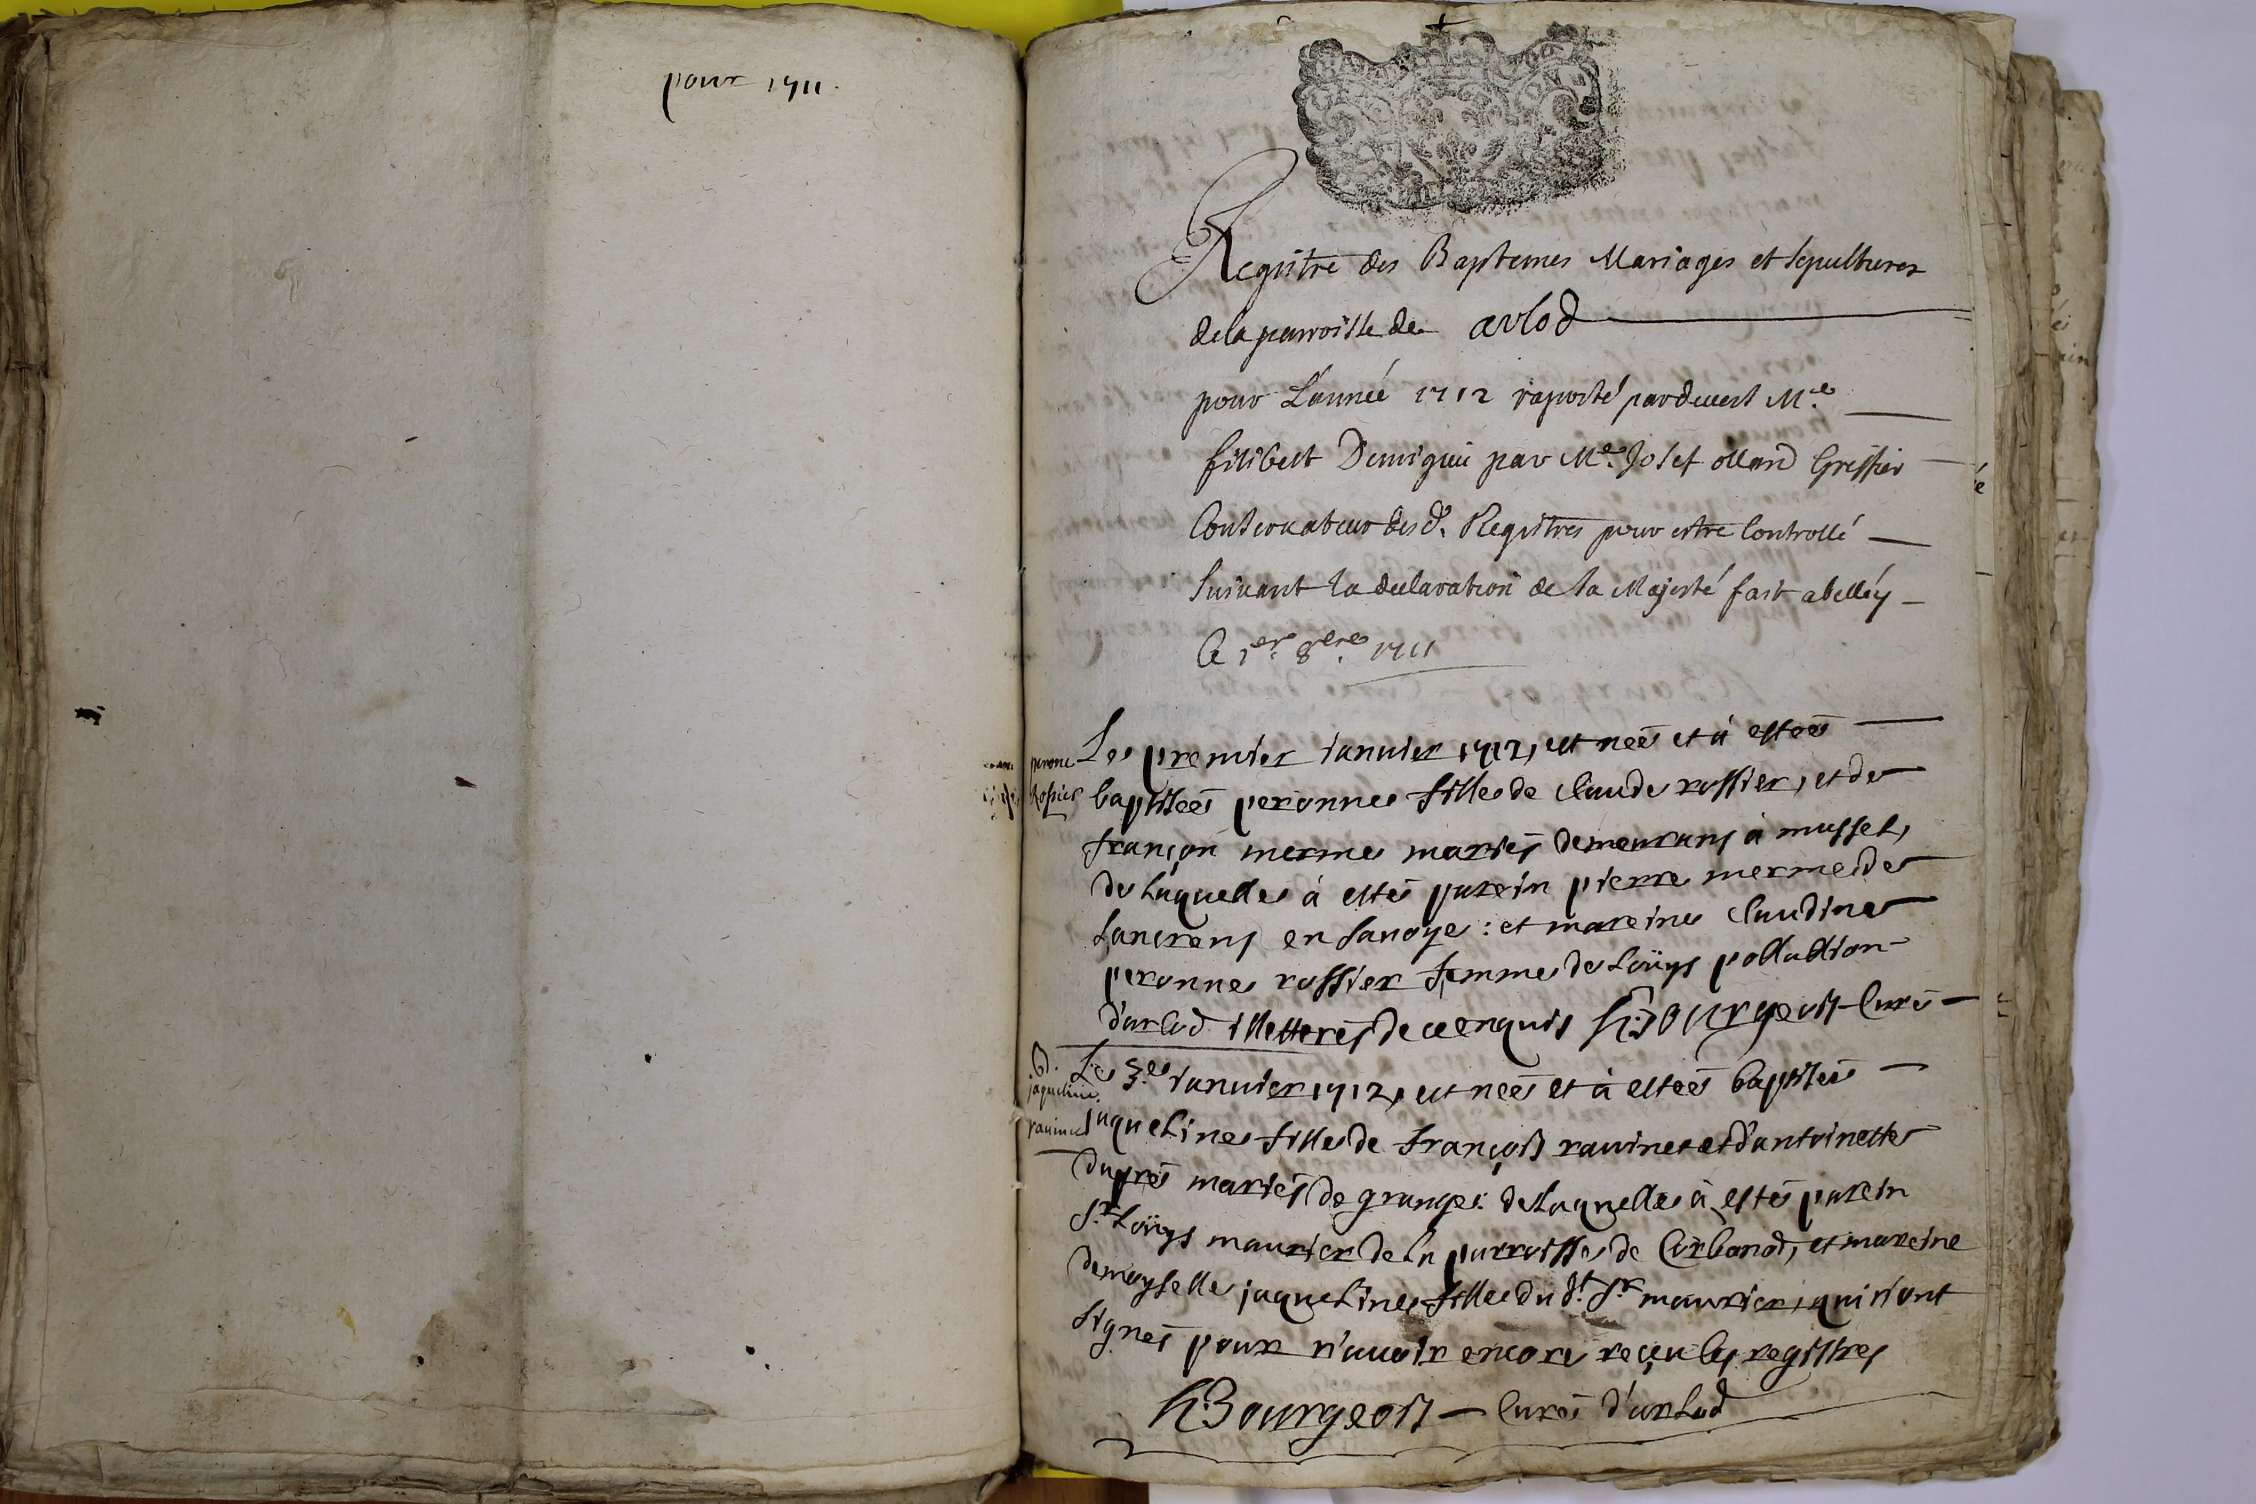 pour 1711.
Registre des Baptemes Mariages et sepultures
de la parroisse de arlod
pour L'année 1712 raporté pardevert M.e
filibert Demigieu par M.e Josef olland Greffier
Conservateur desd. Registres pour estre Controllé
suivant la declaration de sa Majesté fait abelléy
le 1er. 8bre. 1711
perone
Rosier
Le premier ianvier 1712, est neé et à esteé
baptiseé peronne fille de claude rossier, et de
françon merme mariés demeurans à musset,
de laquelle à esté parein pierre merme de
Lancrens en savoye : et mareine claudine
peronne rossier femme de Loüys pollaltion
d'arlod illetterés de ce enquis h:Bourgeois Curé
B.
jaqueline
ravinet
Le 3.e ianvier 1712, est neé et à esteé baptiseé
jaqueline fille de françois ravinet et d'antoinette
dupré mariés de granges: de laquelle à esté parein
S.r Loüys maurier de la parroisse de Corbonod, et mareine
demoyselle jaqueline fille du d.t S.r maurier, qui n'ont
signés pour n'avoir encore reçeu les registres
h:Bourgeois Curé d'arlod